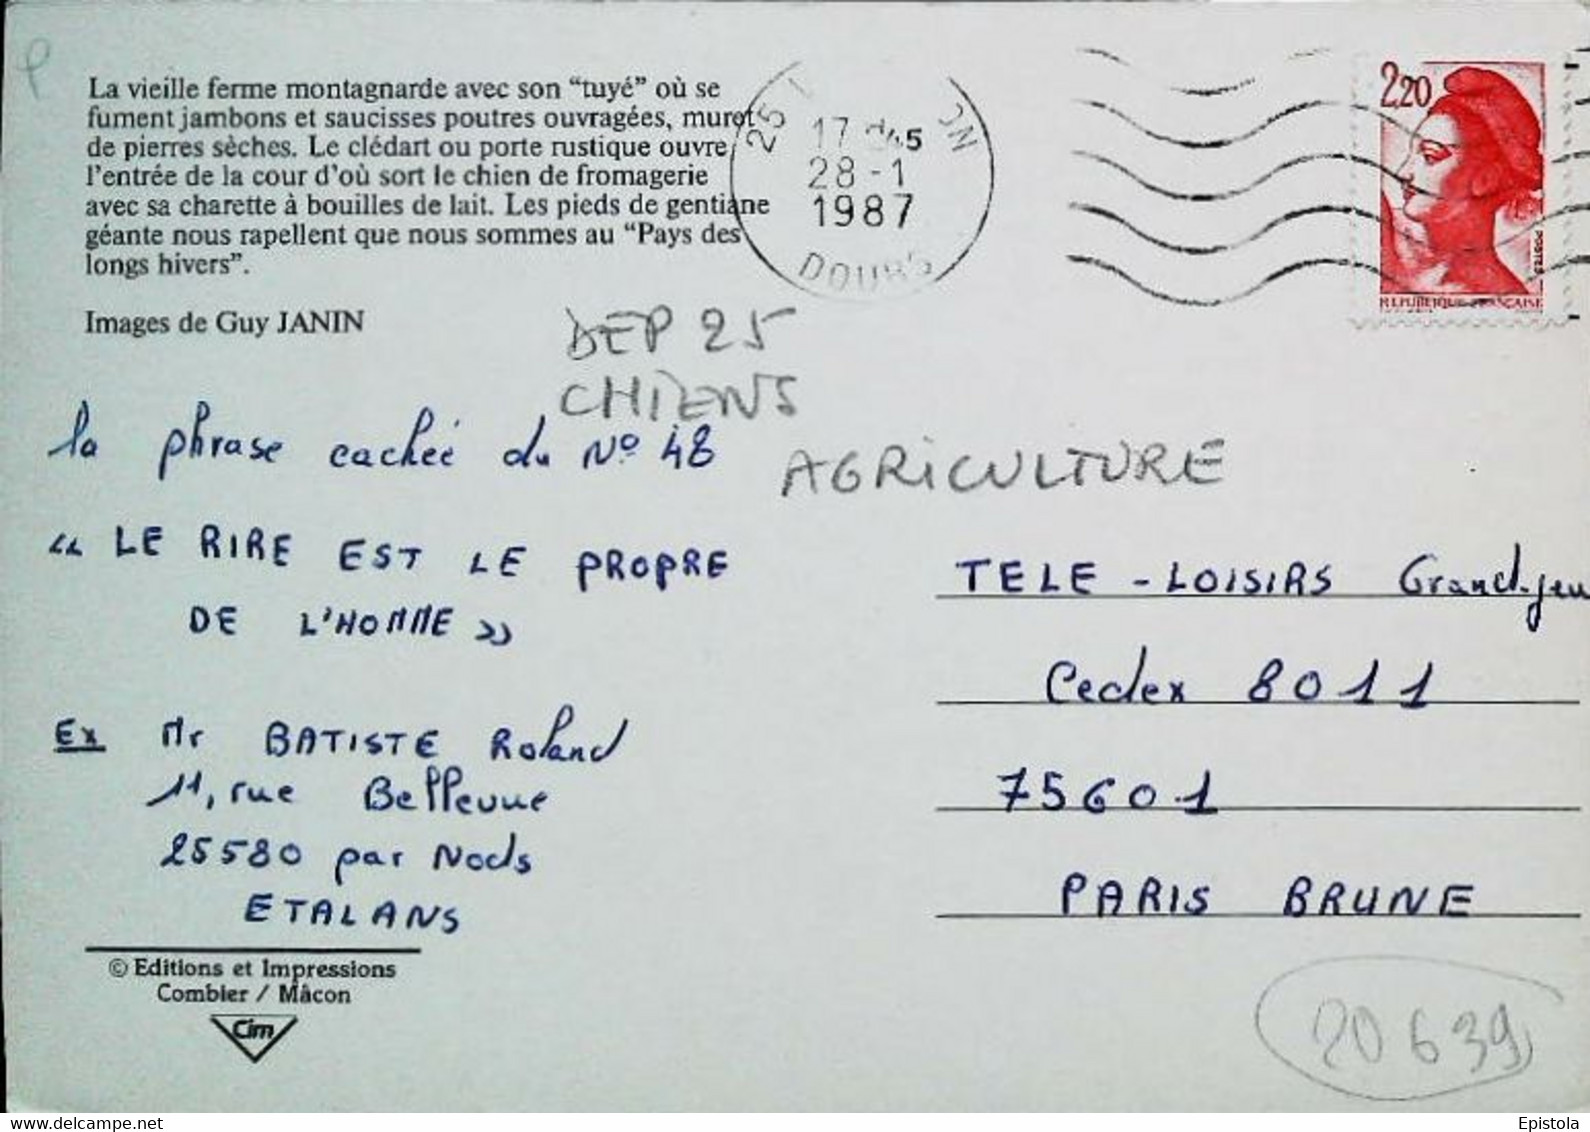 La vieille ferme montagnarde avec son “tuyé” où se
fument jambons et saucisses poutres ouvragées, muret
de pierres sèches. Le clédart ou porte rustique ouvre
l'entrée de la cour d'où sort le chien de fromagerie
avec sa charette à bouilles de lait. Les pieds de gentiane
géante nous rapellent que nous sommes au “Pays des
longs hivers”.
Images de Guy JANIN
25
17 H45
28-1
1987
DOUBS
2,20
POSTES
REPUBLIQUE FRANÇAISE
DEP 25
CHIENS
AGRICULTURE
la phrase cachée du N° 48
« LE RIRE EST LE PROPRE
DE L'HOMME »
Ex Mr BATISTE Roland
11, rue Bellevue
25580 par Nods
ETALANS
© Editions et Impressions
Combier / Mâcon
Cim
TELE-LOISIRS Grand-jeu
Cedex 8011
75601
PARIS BRUNE
20639
www.delcampe.net
Epistola